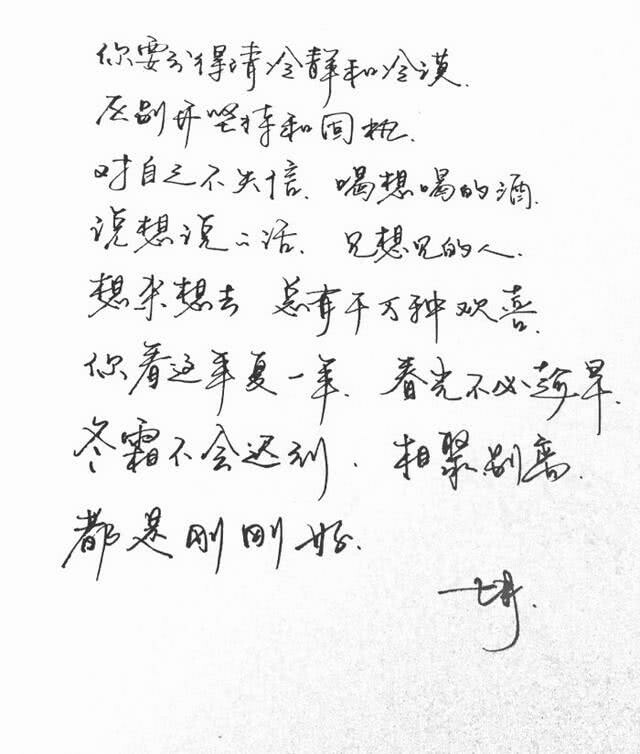 你要分得清冷静和冷漠.
区别开坚持和固执.
对自己不失信、喝想喝的酒.
说想说的话、见想见的人.
想来想去 总有千万种欢喜.
你看这年复一年、春光不必趁早.
冬霜不会迟到、相聚别离.
都是刚刚好.